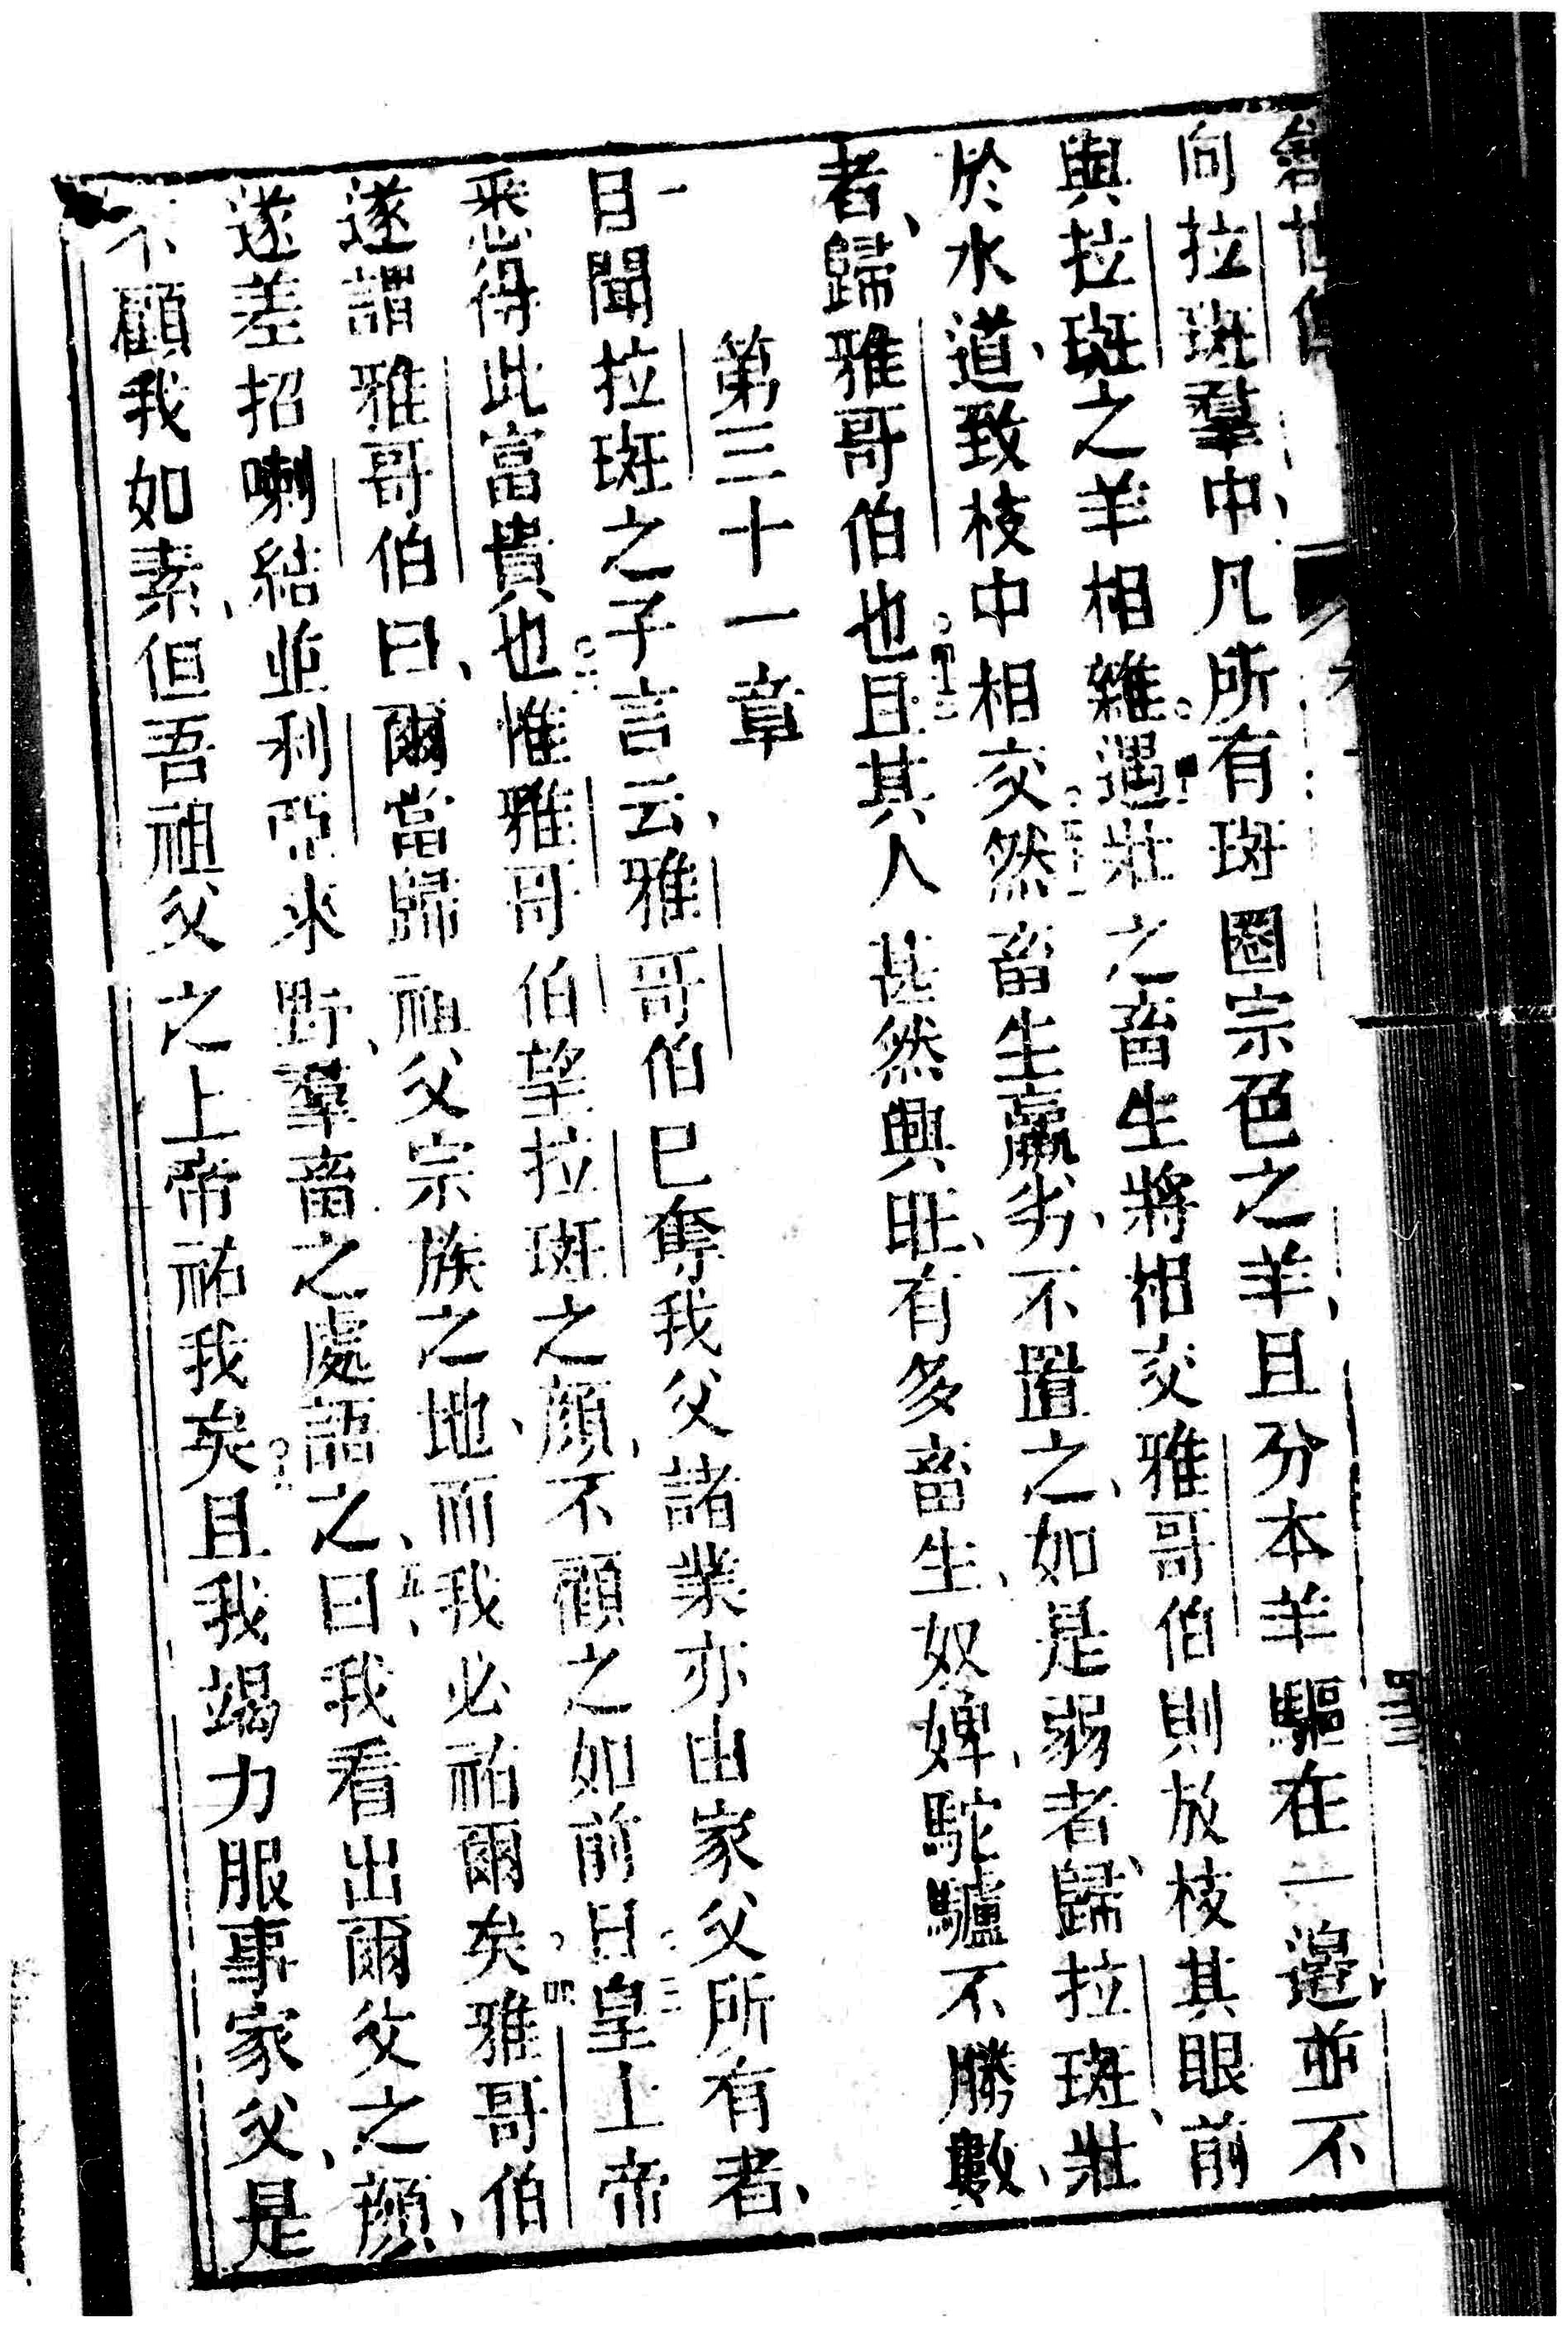 向拉斑羣中、凡所有斑圈宗色之羊、且分本羊驅在一邊、並不
與拉斑之羊相雜。遇壯之畜生將相交雅哥伯則放枝其眼前
於水道、致枝中相交然畜生羸劣、不置之、如是弱者、歸拉斑、壯
者、歸雅哥伯也。四十三且其人甚然興旺、有多畜生、奴婢、駝驢不勝數、
第三十一章
一目聞拉斑之子言云、雅哥伯已奪我父諸業亦由家父所有者、
悉得此富貴也。二惟雅哥伯望拉斑之顔、不顧之如前日。三皇上帝
遂謂雅哥伯曰、爾當歸祖父宗族之地、而我必祐爾矣。四雅哥伯
遂差招喇結並利亞來野、羣畜之處語之、五曰、我看出爾父之顔、
不顧我如素、但吾祖父之上帝祐我矣。六且我竭力服事家父、是